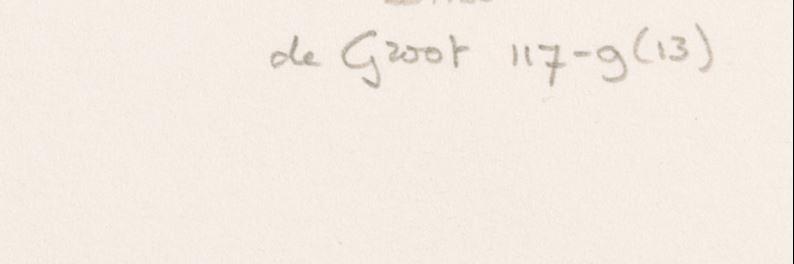 de Groot 117-g(13)